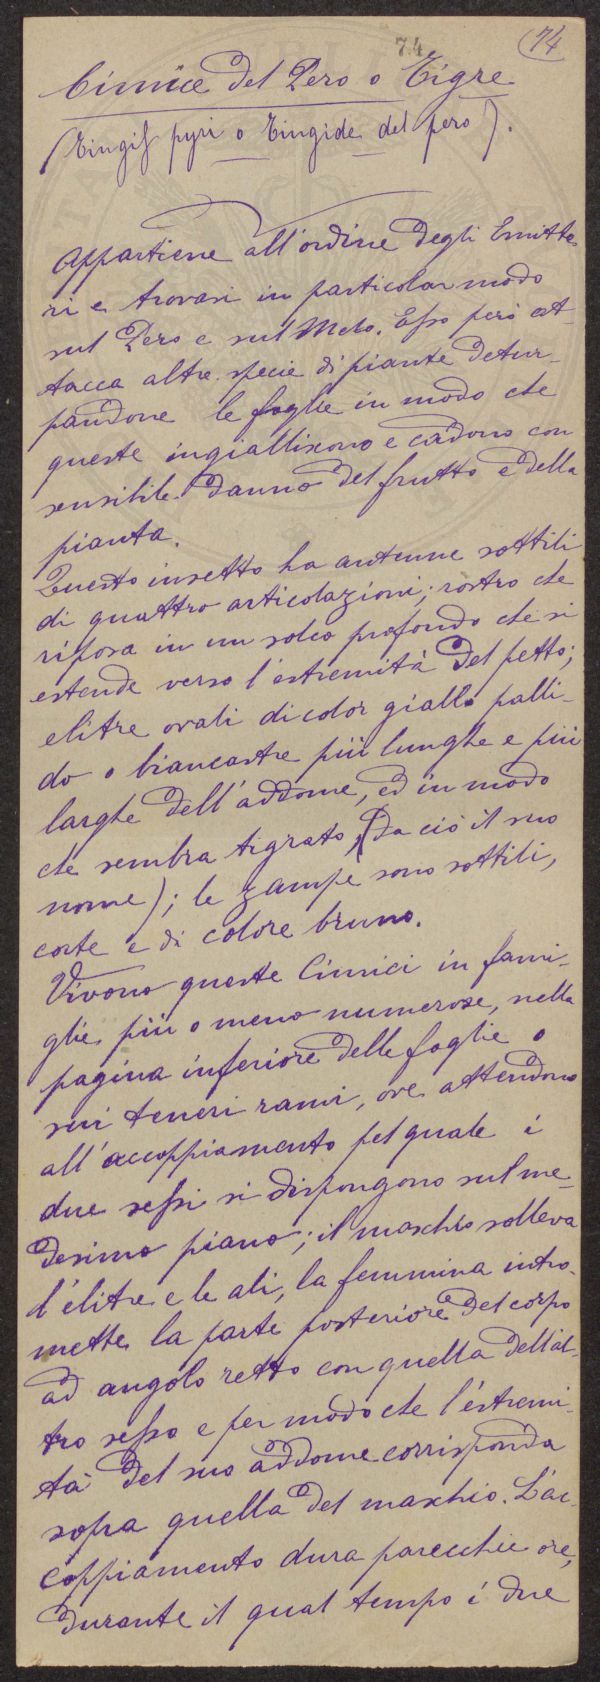 74
74
Cimice del Pero o Tigre
(Tingis pyri o Tingide del pero).
Appartiene all'ordine degli Emitte-
ri e trovasi in particolar modo
sul Pero e sul Melo. Esso però at-
tacca altre specie di piante detur-
pandone le foglie in modo che
queste ingialliscono e cadono con
sensibile danno del frutto e della
pianta.
Questo insetto ha antenne sottili
di quattro articolazioni; rostro che
riposa in un solco profondo che si
estende verso l'estremità del petto;
elitre ovali di color giallo palli-
do o biancastre più lunghe e più
larghe dell'addome, ed in modo
che sembra tigrato (da ciò il suo
nome); le zampe sono sottili,
corte e di colore bruno.
Vivono queste Cimici in fami-
glie più o meno numerose, nella
pagina inferiore delle foglie o
sui teneri rami, ove attendono
all'accoppiamento pel quale i
due sessi si dispongono sul me-
desimo piano; il maschio solleva
l'élitre e le ali, la femmina intro-
mette la parte posteriore del corpo
ad angolo retto con quella dell'al-
tro sesso e per modo che l'estremi-
tà del suo addome corrisponda
sopra quella del maschio. L'ac-
coppiamento dura parecchie ore,
durante il qual tempo i due